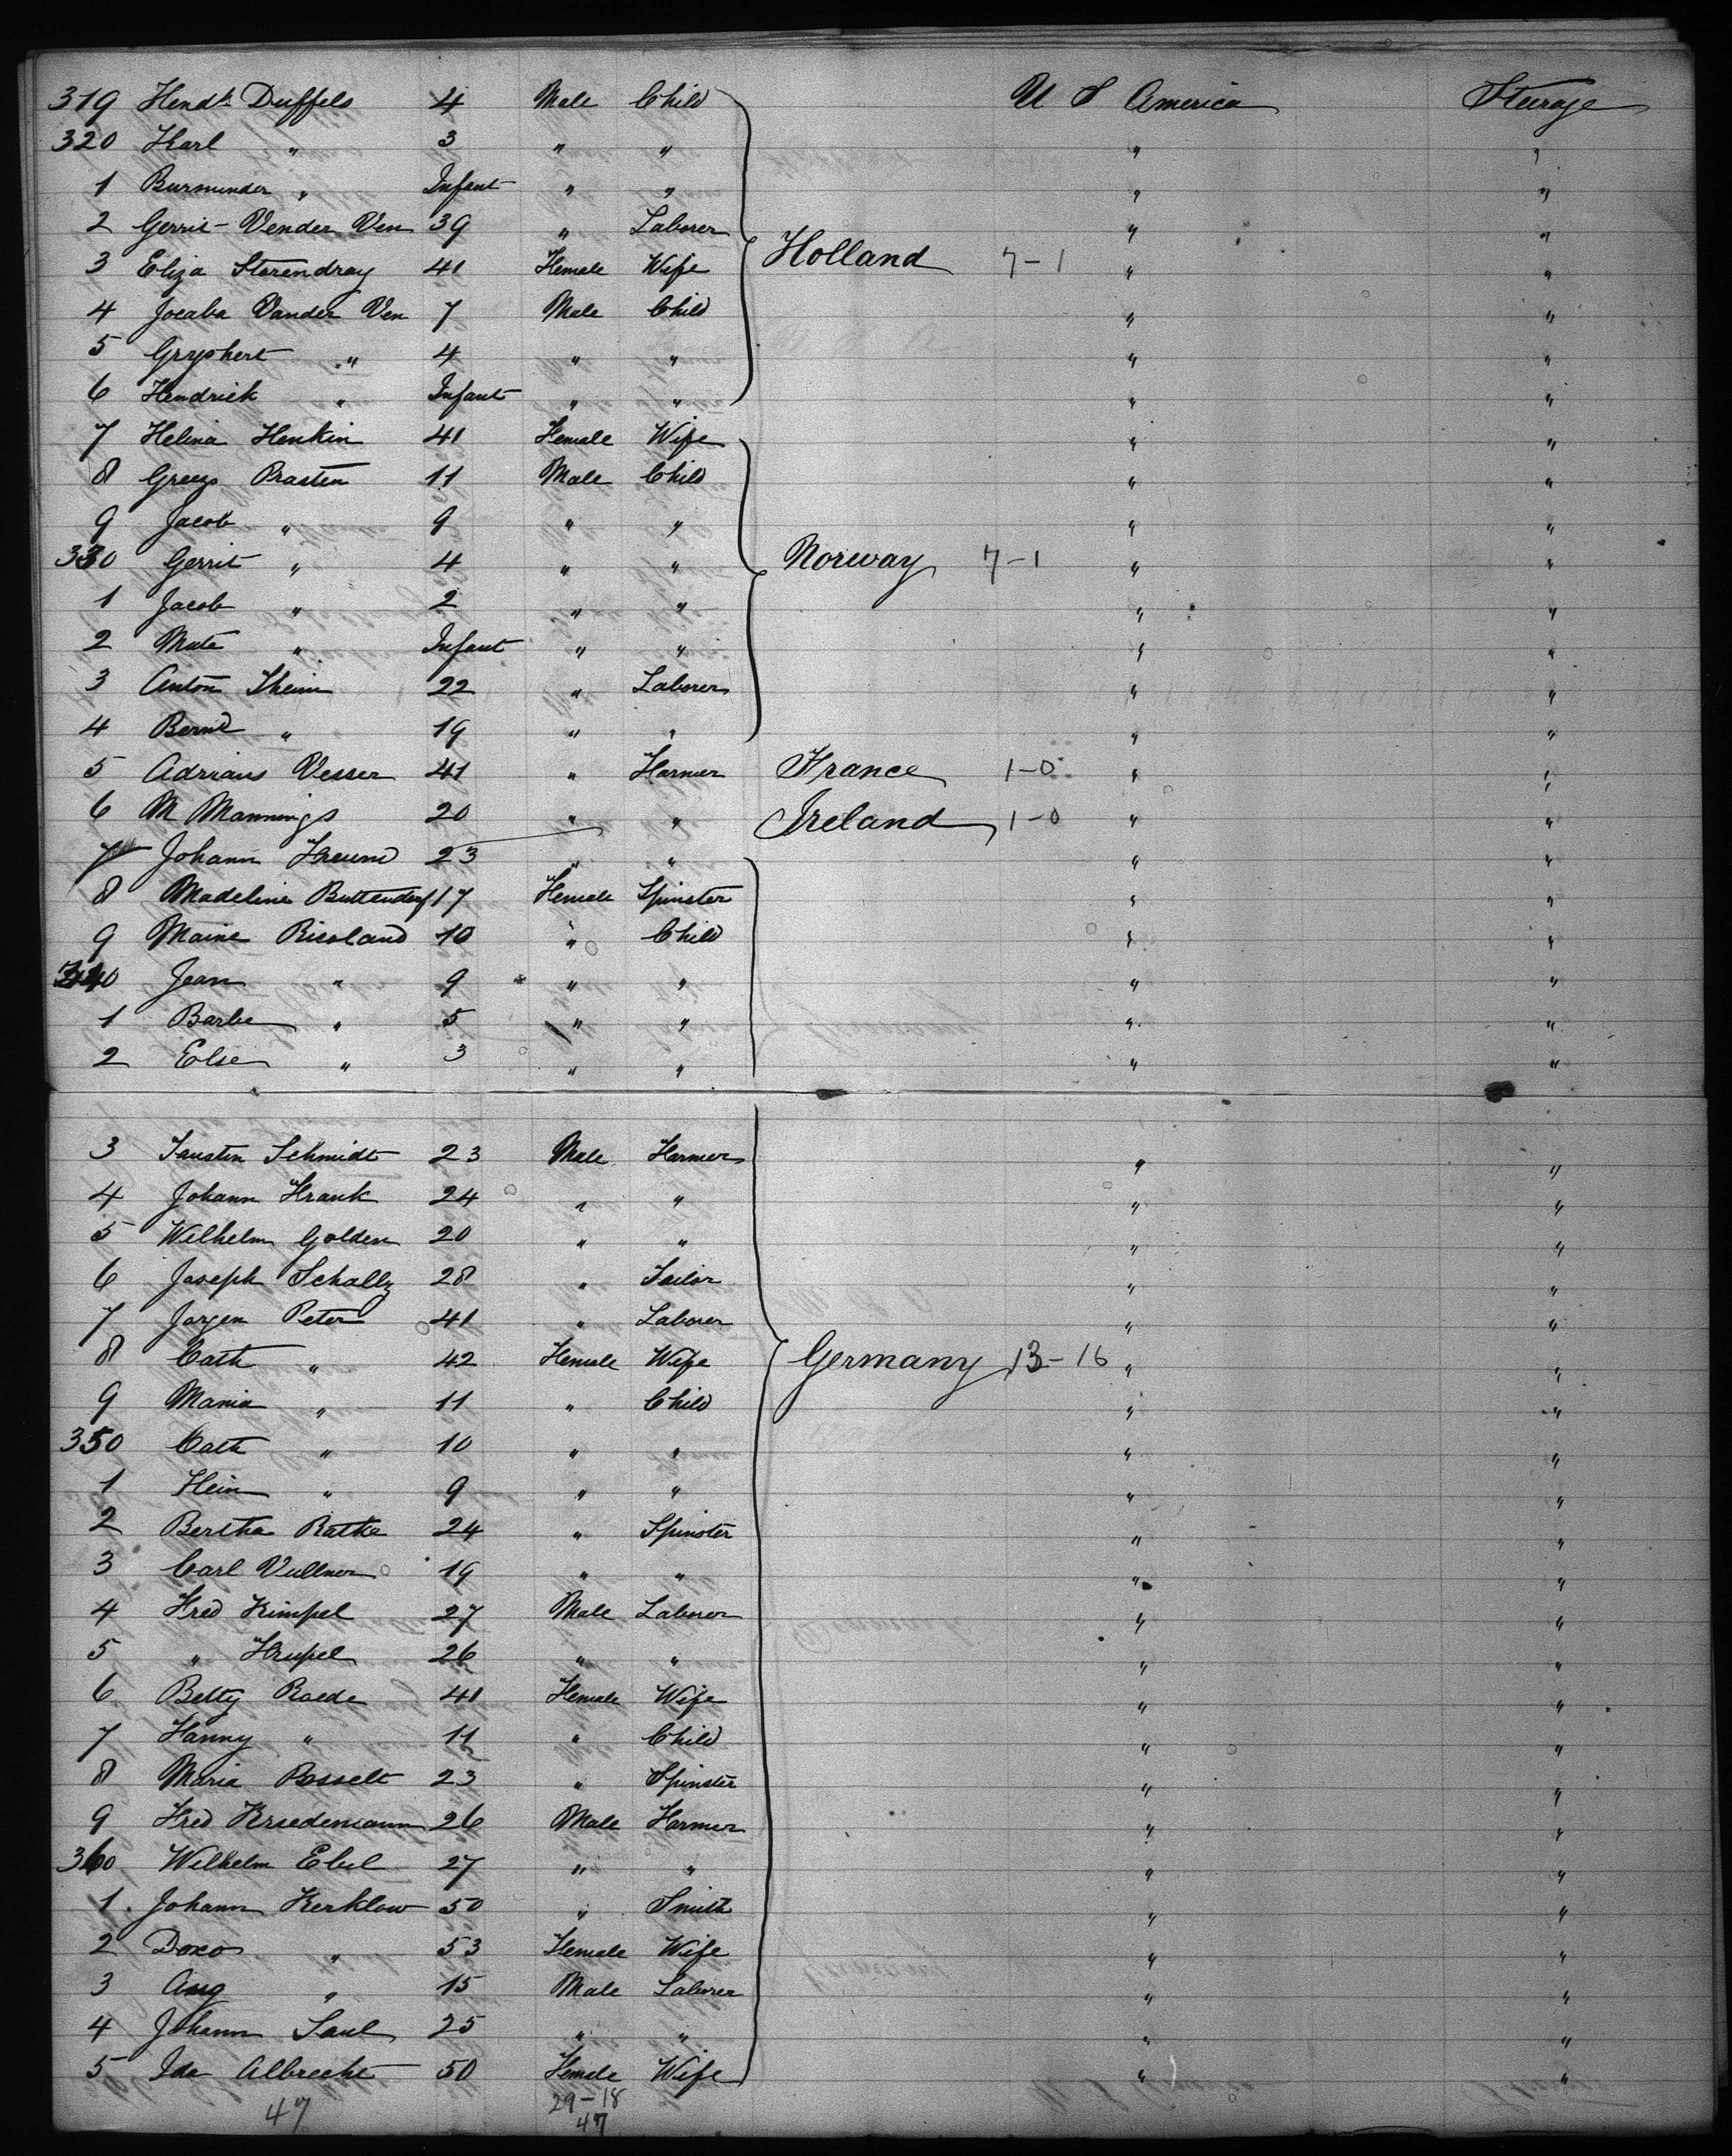 319 Hendk Duffels 4 Male Child U S America Steerage
320 Karl " 3 " " " "
1 Burminder " Infant " " " "
2 Gerrit Vender Ven 39 " Laborer " "
3 Eliza Storendray 41 Female Wife Holland 7-1 " "
4 Jocaba Vander Ven 7 Male Child " "
5 Gryphert " 4 " " " "
6 Hendrick " Infant " " " "
7 Helina Henkin 41 Female Wife " "
8 Greezs Prasten 11 Male Child " "
9 Jacob " 9 " " " "
330 Gerrit " 4 " " Norway 7-1 " "
1 Jacob " 2 " " " "
2 Mata " Infant " " " "
3 Anton Theim 22 " Laborer " "
4 Bernd " 19 " " " "
5 Adrians Vesser 41 " Farmer France 1-0 " "
6 M Mannings 20 " " Ireland 1-0 " "
7 Johann Freund 23 " " " "
8 Madeline Buttendorf 17 Female Spinster " "
9 Maine Ricoland 10 " Child " "
340 Jean " 9 " " " "
1 Barbe " 5 " " " "
2 Else " 3 " " " "
3 Fausten Schmidt 23 Male Farmer " "
4 Johann Frank 24 " " " "
5 Wilhelm Golden 20 " " " "
6 Joseph Schally 28 " Tailor " "
7 Jorgen Peter 41 " Laborer " "
8 Cath " 42 Female Wife Germany 13-16 " "
9 Maria " 11 " Child " "
350 Cath " 10 " " " "
1 Hein " 9 " " " "
2 Bertha Rathe 24 " Spinster " "
3 Carl Vullner 19 " " " "
4 Fred Kimpel 27 Male Laborer " "
5 " Krupel 26 " " " "
6 Betty Roede 41 Female Wife " "
7 Fanny " 11 " Child " "
8 Maria Posselt 23 " Spinster " "
9 Fred Kriedemann 26 Male Farmer " "
360 Wilhelm Ebel 27 " " " "
1 Johann Kerklow 50 " Smith " "
2 Doxo " 53 Female Wife " "
3 Aug " 15 Male Laborer " "
4 Johann Saul 25 " " " "
5 Ida Albrecht 50 Female Wife " "
47 29-18
47